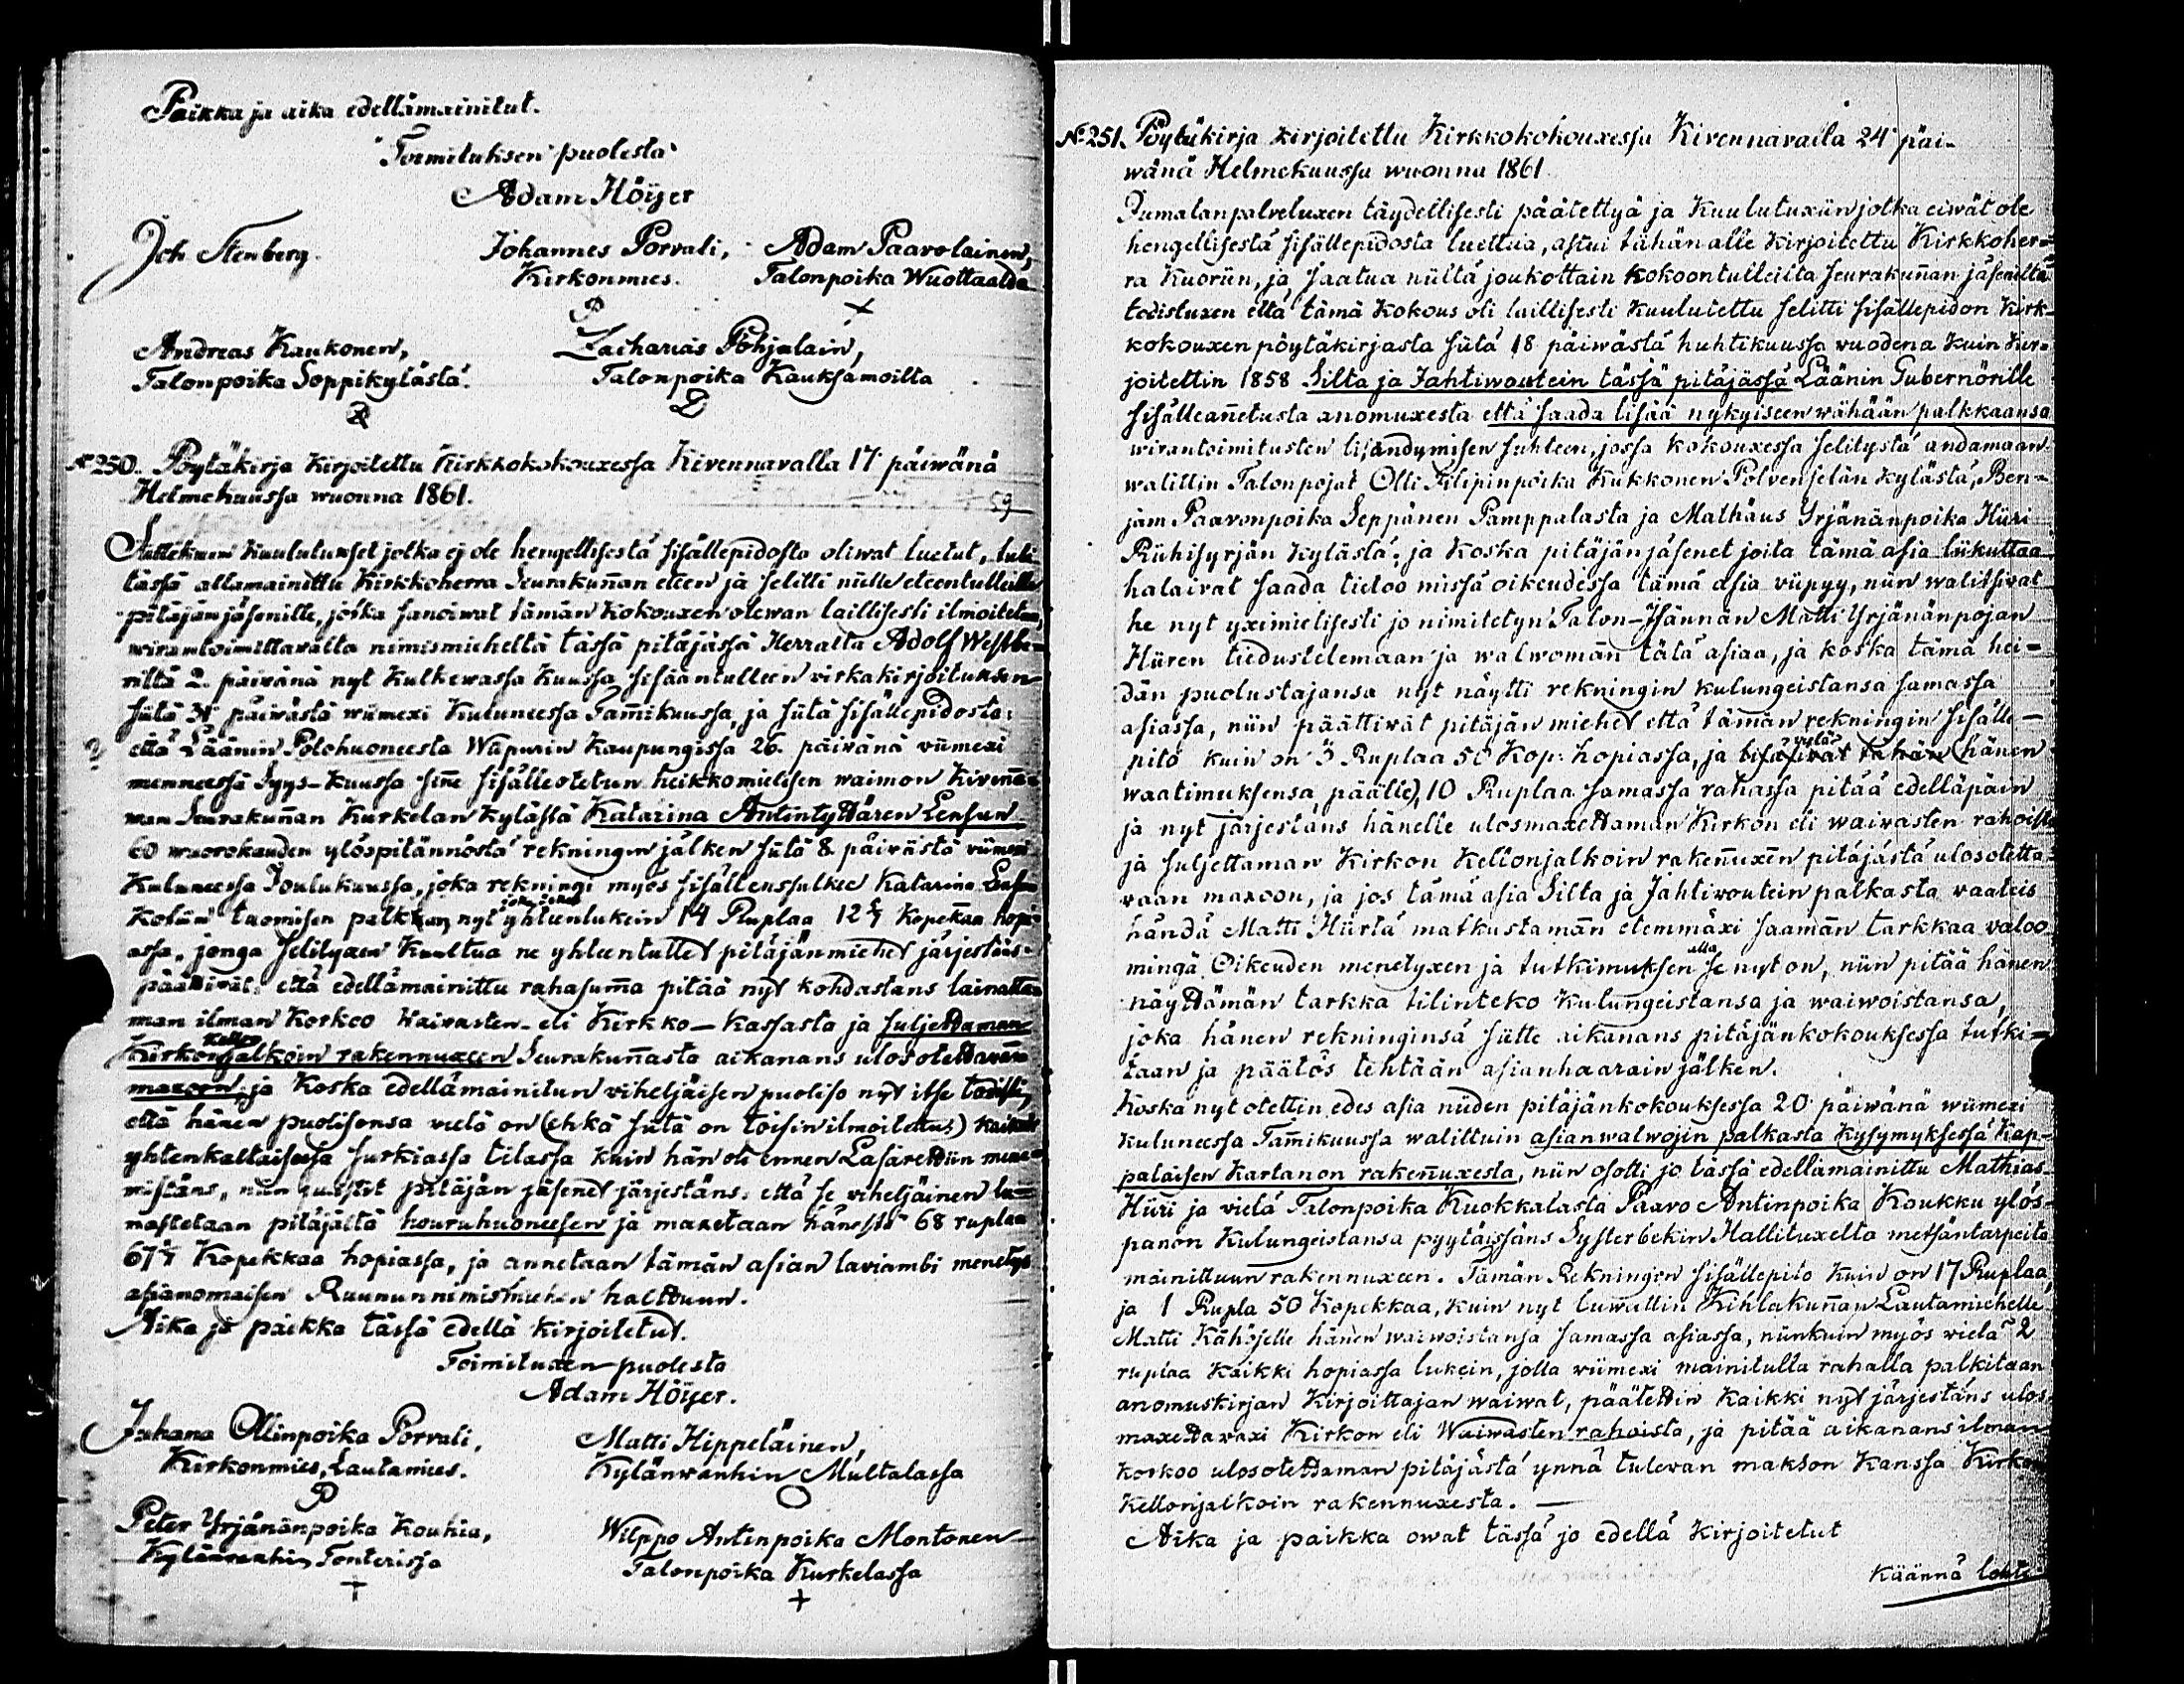 Paikka ja aika edellämainitut.
Toimituksen puolesta
Adam Höijer
Joh Stenberg. Johannes Porvali, Adam Paavolainen,
Kirkonmies. Talonpoika Wuottaalda
P +
Andreas Kaukonen, Zacharias Pohjalain,
Talonpoika Soppikylästä. Talonpoika Kauksamoilta
№ 250. Pöytäkirja Kirjoitettu Kirkkokokouxessa Kivennavalla 17 päiwänä
Helmekuussa wuonna 1861.
59
Kuulutuxset jotka ej ole hengellisestä sisällepidosta oliwat luetut, tuli
tässä allamainittu Kirkkoherra Seurakunnan eteen ja selitti niille eteentulleille
pitäjän jäsenille, jotka sanoiwat tämän Kokouxen olewan laillisesti ilmoitetun,
wirantoimittavalta nimismieheltä tässä pitäjässä Herralta Adolf Westbe-
riltä 2. päiwänä nyt Kulkewassa Kuussa sisääntulleen virkakirjoituksen
siitä 31 päiwästä wiimexi Kuluneessa Tammikuussa, ja siitä sisällepidosta:
että Läänin Potohuoneesta Wäpurin Kaupungissa 26. päiwänä viimexi
menneessä Syys-Kuussa sinne sisälleotetun heikkomielisen waimon Kivenna-
wan Seurakunnan Kurkelan Kylässä Katarina Antintyttären Lensun
60 wuorokauden ylöspitännöstä rekningin jälken siitä 8 päivästä viimexi
Kuluneessa Joulukuussa, joka rekningi myös sisällenssulkee Katarina Lensun
Kotiin tuomisen palkkan, nyt yhteenlukein 14 Ruplaa 12 4/7 Kopekkaa hopi-
assa, jonga selityxen Kuultua ne yhteentullet pitäjänmiehet järjestäns
päättivät: että edellämainittu rahasumma pitää nyt kohdastans lainatta-
man ilman Korkoo Waivasten- eli Kirkko-Kassasta ja suljettaman
Kello
Kirkonjalkoin rakennuxeen Seurakunnasta aikanans ulosotettavaan
maxoon, ja Koska edellämainitun viheljäisen puoliso nyt itse todisti,
että hänen puolisonsa vielä on (ehkä siitä on toisin ilmoitettu) kaikesti
yhtenkaltaisessa surkiassa tilassa kuin hän oli ennen Lasarettiin mene-
mistäns, niin pitäjän jäsenet järjestäns: että se viheljäinen lu-
nastetaan pitäjältä houruhuoneesen ja maxetaan hänestä 68 ruplaa
67 1/7 Kopekkaa hopiassa, ja annetaan tämän asian laviambi menetys
asianomaisen Ruununnimismiehen halttuun.
Aika ja paikka tässä edellä kirjoitetut.
Toimituxen puolesta
Adam Höijer.
Juhana Ollinpoika Porvali, Matti Hippeläinen,
Kirkonmies, Lautamies. Kylänwanhin Multalassa
P O
Peter Yrjänänpoika Kouhia, Wilppo Antinpoika Montonen
Kylänvanhin Tonterissa Talonpoika Kurkelassa
+ +
№ 251. Pöytäkirja kirjoitettu Kirkkokokouxessa Kivennavalla 24 päi-
wänä Helmekuussa wuonna 1861
Jumalanpalveluxen täydellisesti päätettyä ja Kuulutuxiin jotka eiwät ole
hengellisestä sisällepidosta luettua, astui tähän alle Kirjoitettu Kirkkoher-
ra Kuoriin, ja saatua niiltä joukottain kokoontulleilta seurakunnan jäseniltä
todistuxen että tämä Kokous oli laillisesti Kuulutettu selitti sisällepidon Kirk-
kokouxen pöytäkirjasta siitä 18 päiwästä huhtikuussa vuodena kuin kir-
joitettin 1858 Silta ja Jahtiwoutein tässä pitäjässä Läänin Gubernörille
sisälleannetusta anomuxesta että saada lisää nykyiseen wähään palkkaansa
wirantoimitusten lisändymisen suhteen, jossa kokouxessa selitystä andamaan
walittin Talonpojat Olli Filipinpoika Kukkonen Polvenselän kylästä, Ben-
jam Paavonpoika Seppänen Pamppalasta ja Mathäus Yrjänänpoika Hiiri
Riihisyrjän Kylästä; ja Koska pitäjän jäsenet joita tämä asia liikuttaa
halaivat saada tietoo missä oikeudessa tämä asia viipyy, niin walitsivat
he nyt yximielisesti jo nimitetyn Talon-Isännän Matti Yrjänänpojan
Hiiren tiedustelemaan ja walwoman tätä asiaa, ja koska tämä hei-
dän puolustajansa nyt näytti rekningin kulungeistansa samassa
asiassa, niin päättivät pitäjän miehet että tämän rekningin sisälle-
pito kuin on 3 Ruplaa 50 Kop: hopiassa, ja lisäsivat tähän (hänen
waatimuksensa päälle), 10 Ruplaa samassa rahassa pitää edelläpäin
ja nyt järjestäns hänelle ulosmaxettaman Kirkon eli waiwasten rahoista
ja suljettaman Kirkon Kellonjalkoin rakennuxen pitäjästä ulosotetta-
vaan maxoon, ja jos tämä asia Silta ja Jahtivoutein palkasta vaateis
händä Matti Hiirtä matkustamän etemmäxi saamän tarkkaa valoo
alla
mingä Oikeuden menetyxen ja tutkimuksen se nyt on, niin pitää hänen
näyttämän tarkka tilinteko Kulungeistansa ja waiwoistansa,
joka hänen rekninginsä siitte aikanans pitäjänkokouksessa tutki-
taan ja päätös tehtään asianhaarain jälken.
Koska nyt otettin edes asia niiden pitäjänkokouksessa 20 päiwänä wiimexi
Kuluneessa Tammikuussa walittuin asianwalwojin palkasta Kysymyksessä Kap-
palaisen Kartanon rakennuxesta, niin osotti jo tässä edellämainittu Mathias
Hiiri ja vielä Talonpoika Kuokkalasta Paavo Antinpoika Koukku ylös-
panon Kulungeistansa pyytäissäns Systerbekin Hallituxelta metsäntarpeita
mainittuun rakennuxeen. Tämän Rekningin sisällepito Kuin on 17 Ruplaa,
ja 1 Rupla 50 Kopekkaa, kuin nyt luwattiin Kihlakunnan Lautamiehelle
Matti Kähöselle hänen waiwoistansa samassa asiassa, niinkuin myös vielä 2
ruplaa kaikki hopiassa lukein, jolla viimexi mainitulla rahalla palkitaan
anomuskirjan Kirjoittajan waiwat, päätettin Kaikki nyt järjestäns ulos-
maxettavaxi Kirkon eli Waiwasten rahoista, ja pitää aikanans ilman
korkoo ulosotettaman pitäjästä ynnä tulevan makson Kanssa Kirkon
Kellonjalkoin rakennuxesta. —
Aika ja paikka owat tässä jo edellä Kirjoitetut
Käännä lehti